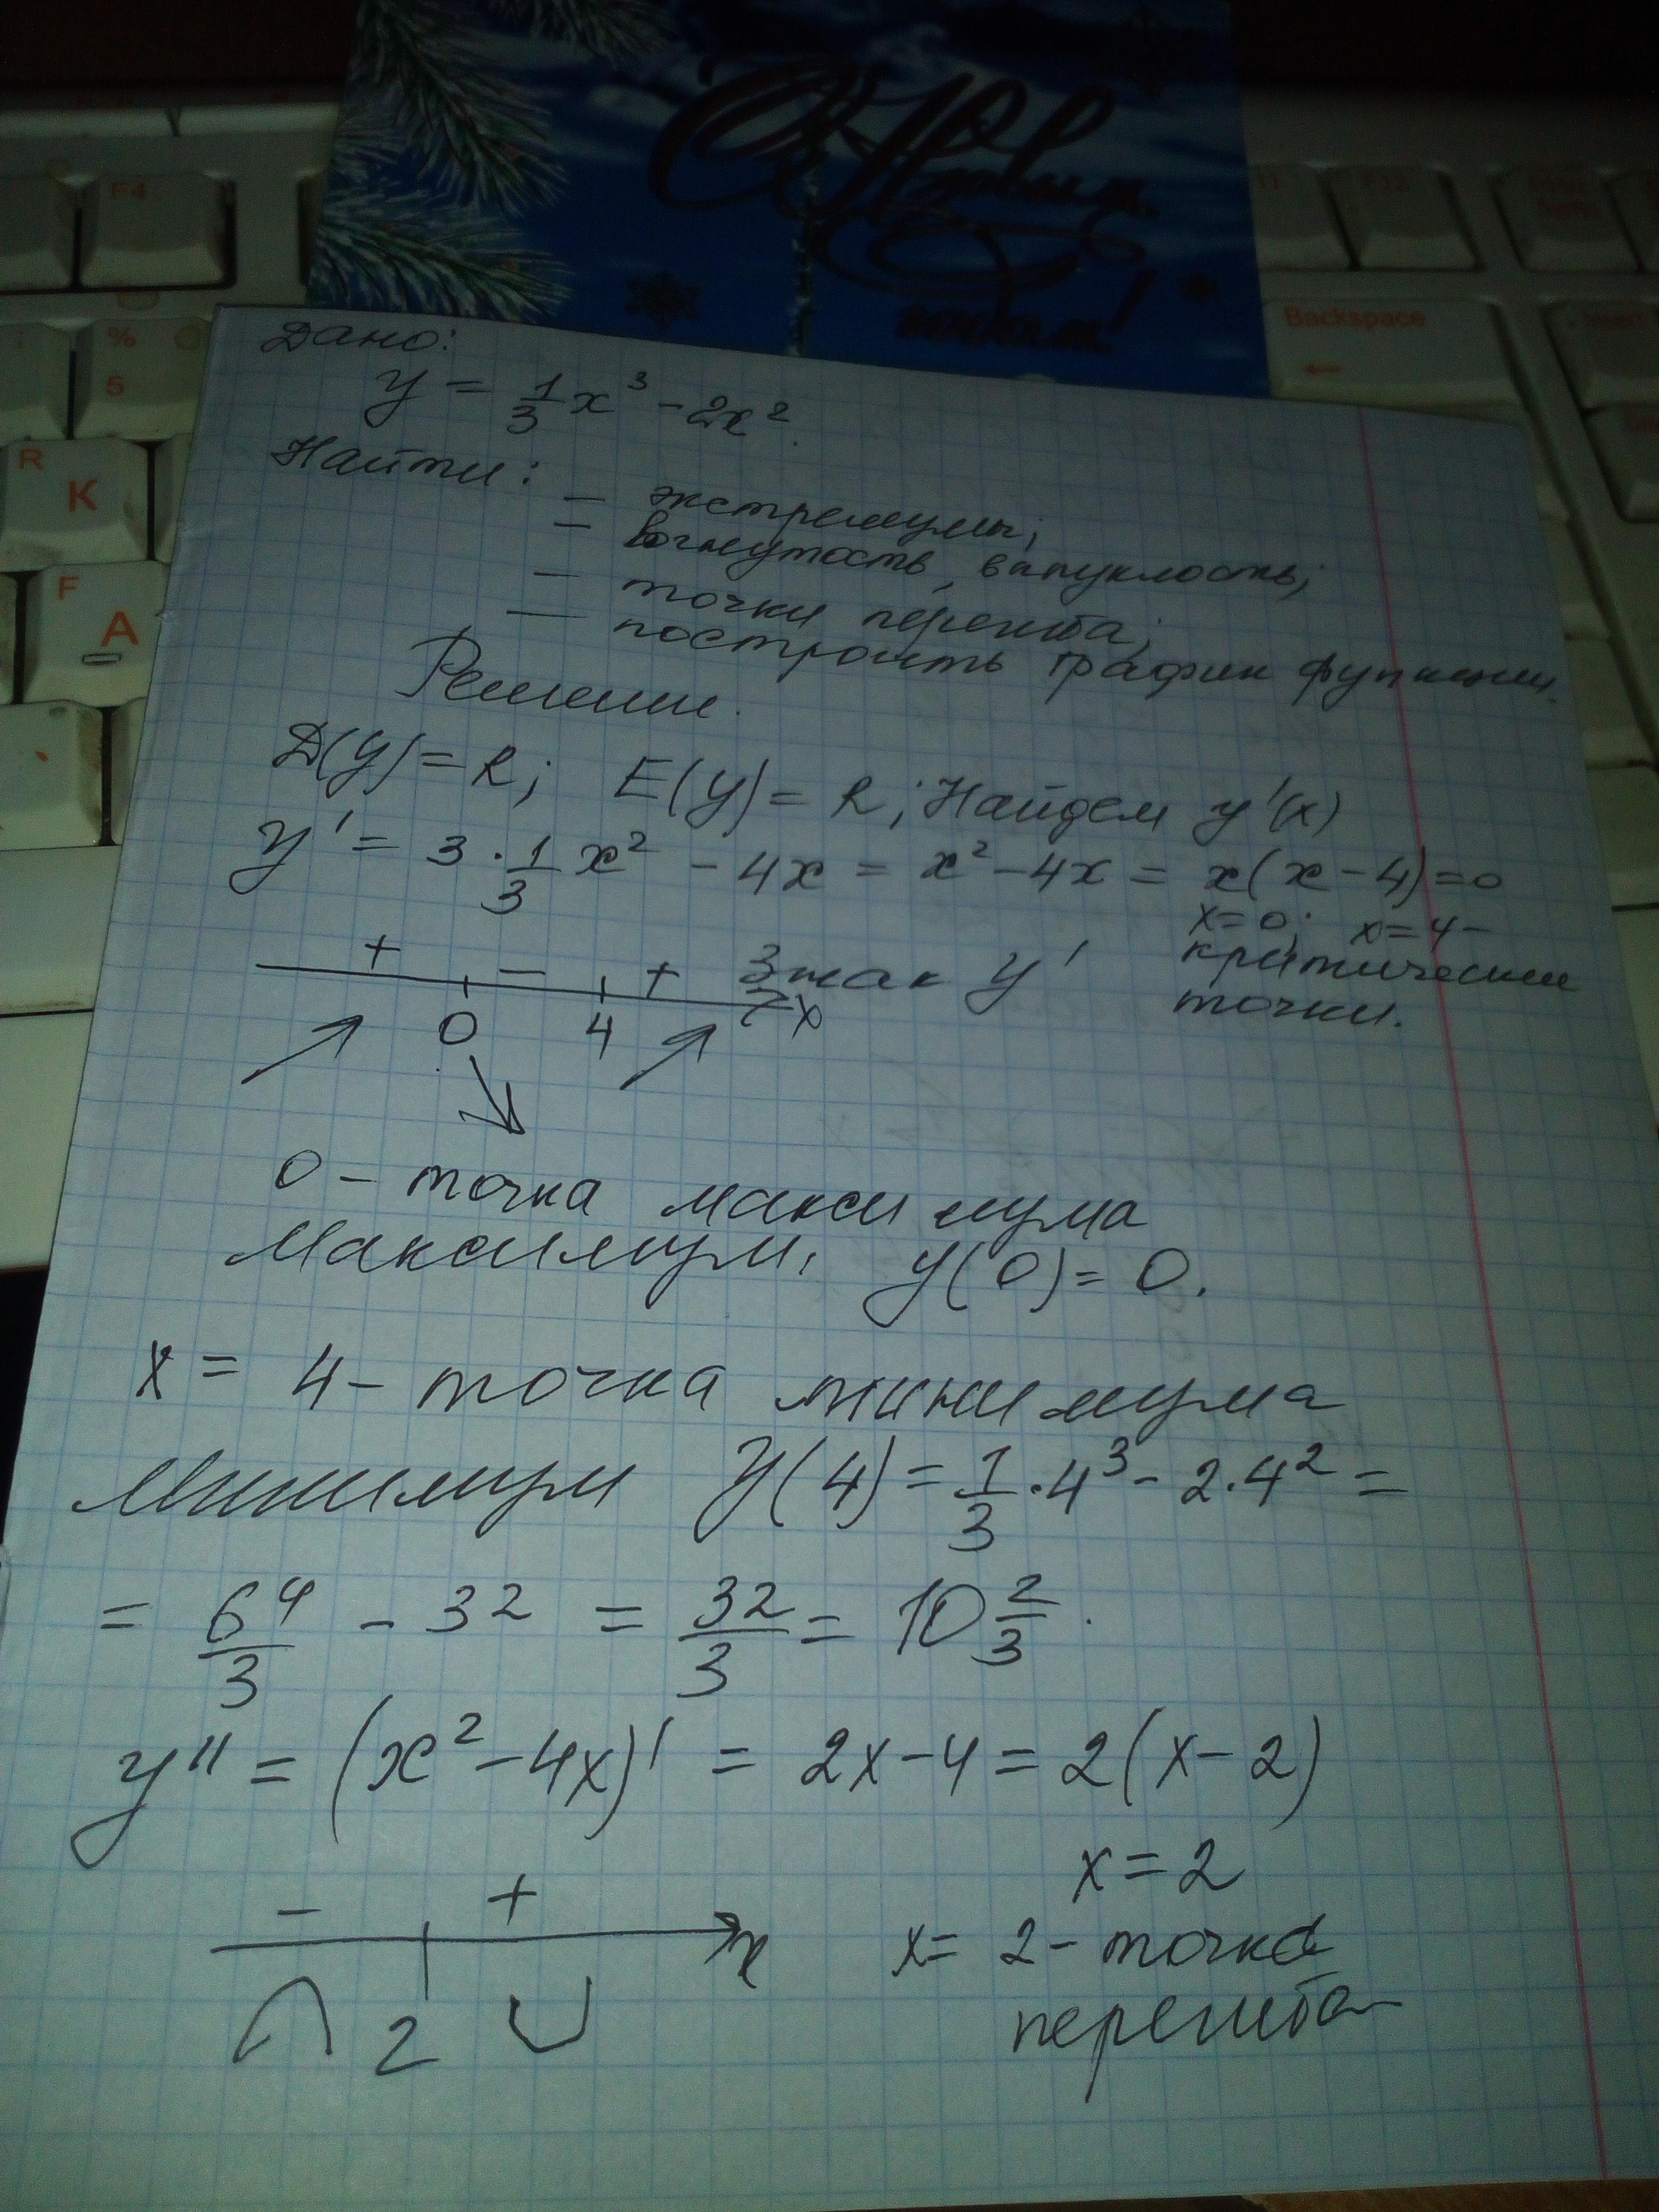 С Новым
годом!
F4
F12
%
5
Backspace
←
R
К
F
А
Дано:
y = 1/3 x³ - 2x².
Найти:
— экстремумы;
— вогнутость, выпуклость;
— точки перегиба;
— построить график функции.
Решение.
D(y) = R; E(y) = R; Найдем y'(x)
y' = 3 · 1/3 x² - 4x = x² - 4x = x(x - 4) = 0
x = 0; x = 4 -
критические
точки.
+ - + Знак y'
0 4 x
0 - точка максимума
Максимум: y(0) = 0.
x = 4 - точка минимума
Минимум y(4) = 1/3 · 4³ - 2 · 4² =
= 64/3 - 32 = 32/3 = 10 2/3.
y'' = (x² - 4x)' = 2x - 4 = 2(x - 2)
x = 2
- + x
2
x = 2 - точка
перегиба